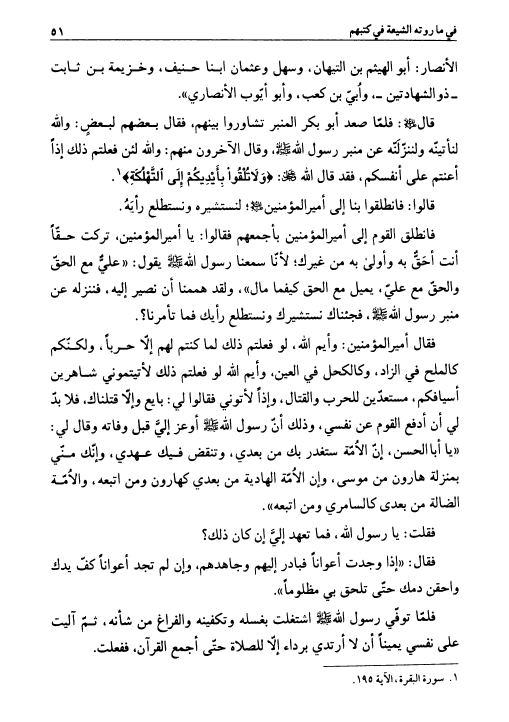 في ما روته الشيعة في كتبهم ٥١
الأنصار: أبو الهيثم بن التيهان، وسهل وعثمان ابنا حنيف، وخزيمة بن ثابت
ـ ذو الشهادتين ـ، وأُبيّ بن كعب، وأبو أيّوب الأنصاري».
قال ﷺ: فلمّا صعد أبو بكر المنبر تشاوروا بينهم، فقال بعضهم لبعضٍ: والله
لنأتينّه ولننزلَنّه عن منبر رسول الله ﷺ، وقال الآخرون منهم: والله لئن فعلتم ذلك إذاً
أعنتم على أنفسكم، فقد قال الله ﷻ: ﴿وَلَاتُلْقُوا بِأَيْدِيكُمْ إِلَى التَّهْلُكَةِ﴾١.
قالوا: فانطلقوا بنا إلى أميرالمؤمنين؛ لنستشيره ونستطلع رأيَهُ.
فانطلق القوم إلى أميرالمؤمنين بأجمعهم فقالوا: يا أميرالمؤمنين، تركت حقّاً
أنت أحَقُّ به وأولىٰ به من غيرك؛ لأنّا سمعنا رسول الله ﷺ يقول: «عليٌّ مع الحقّ
والحقّ مع عليّ، يميل مع الحق كيفما مال»، ولقد هممنا أن نصير إليه، فننزله عن
منبر رسول الله ﷺ، فجئناك نستشيرك ونستطلع رأيك فما تأمرنا؟.
فقال أميرالمؤمنين: وأيم الله، لو فعلتم ذلك لما كنتم لهم إلّا حرباً، ولكنّكم
كالملح في الزاد، وكالكحل في العين، وأيم الله لو فعلتم ذلك لأتيتموني شاهرين
أسيافكم، مستعدّين للحرب والقتال، وإذاً لأتوني فقالوا لي: بايع وإلّا قتلناك، فلا بدّ
لي أن أدفع القوم عن نفسي، وذلك أنّ رسول الله ﷺ أوعز إليَّ قبل وفاته وقال لي:
«يا أبا الحسن، إنّ الأمّة ستغدر بك من بعدي، وتنقض فيك عهدي، وإنّك منّي
بمنزلة هارون من موسى، وإن الأمّة الهادية من بعدي كهارون ومن اتبعه، والأمّة
الضالة من بعدى كالسامري ومن اتبعه».
فقلت: يا رسول الله، فما تعهد إليَّ إن كان ذلك؟
فقال: «إذا وجدت أعواناً فبادر إليهم وجاهدهم، وإن لم تجد أعواناً كفّ يدك
واحقن دمك حتّى تلحق بي مظلوماً».
فلمّا توفّي رسول الله ﷺ اشتغلت بغسله وتكفينه والفراغ من شأنه، ثمّ آليت
على نفسي يميناً أن لا أرتدي برداء إلّا للصلاة حتّى أجمع القرآن، ففعلت.
١. سورة البقرة، الآية ١٩٥.